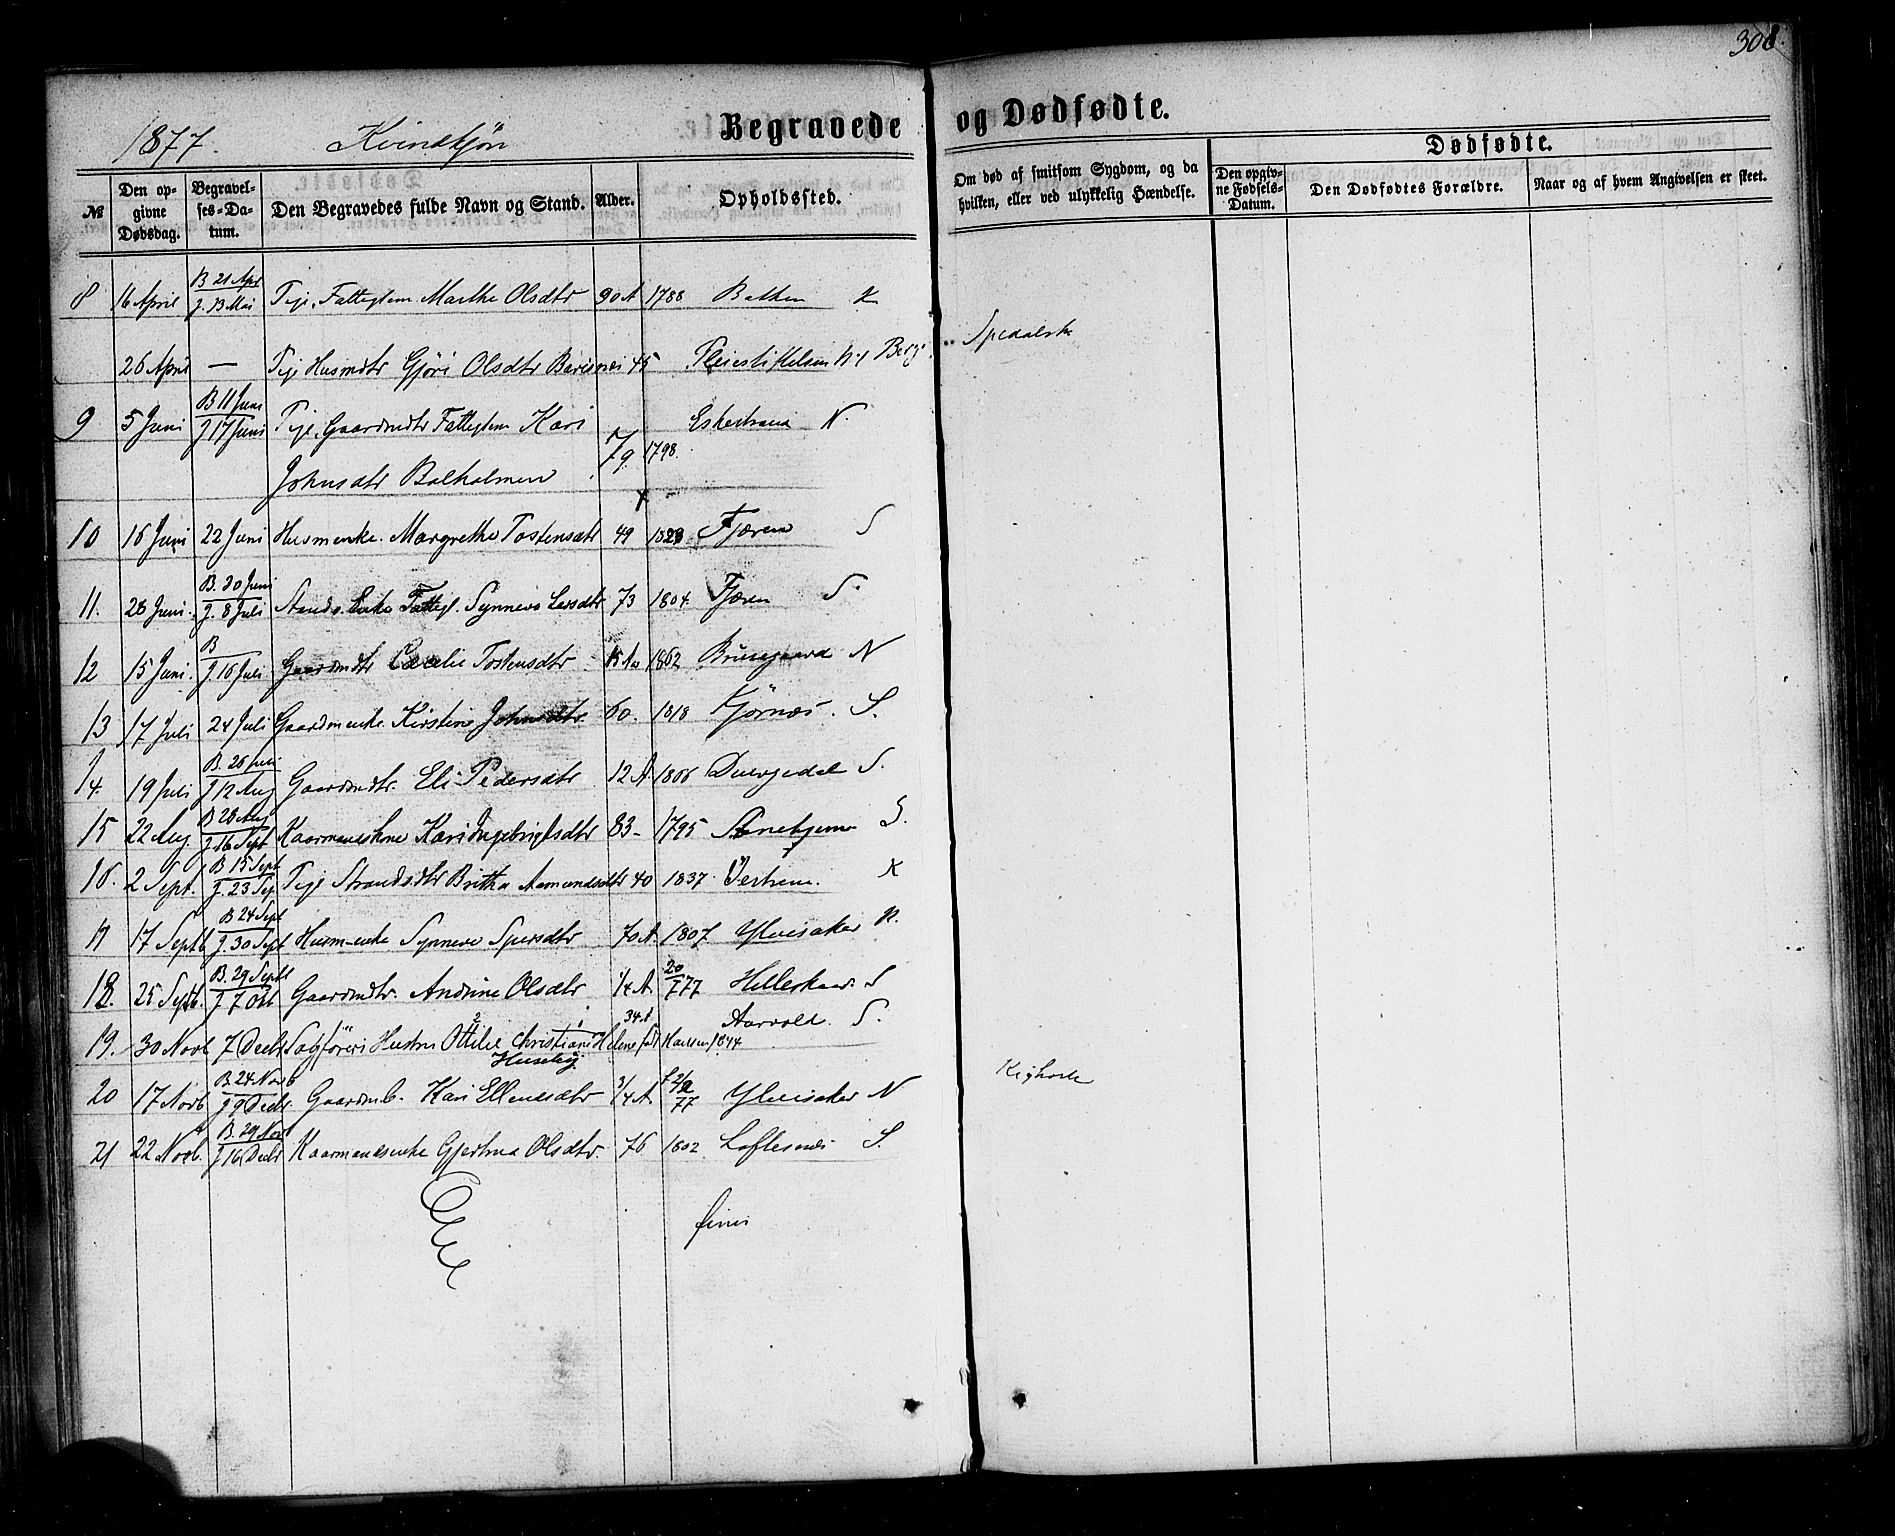 308.
1877. Kvindkjön Begravede og Dødfødte.
№ Den opgivne Dødsdag. Begravelses-Datum. Den Begravedes fulde Navn og Stand. Alder. Opholdssted. Om død af smitsom Sygdom, og da hvilken, eller ved ulykkelig Hændelse. Dødfødte. Den opgivne Fødsels-Datum. Den Dødfødtes Forældre. Naar og af hvem Angivelsen er skeet.
8 16 April B 21 Apr J. 13 Mai Pige, Fattiglem Marthe Olsdtr 90 A 1788 K
26 April — Pige Husmdtr Gjöri Olsdtr 45 Spedalsk
9 5 Juni B 11 Juni J 17 Juni Pige, Gaardmdtr Fattiglem Kari N.
Johnsdtr Balholmen 79 1798.
10 16 Juni 22 Juni Husmenke. Margrethe Tostensdtr 49 1828 Fjæren S
11. 28 Juni. B. 30 Juni J. 8 Juli Enke Fattigl. Synneva Larsdtr 73 1804 Fjæren S.
12 15 Juni. B J. 16 Juli Gaardmdtr Cecelie Tostensdtr 15 Aar 1862 Brusegaard N
13 17 Juli 24 Juli Gaardmenke Kirstine Johnsdtr. 60. 1818 Kjörnæs. S.
14. 19 Juli B. 26 Juli J 12 Aug Gaardmdtr. Eli Pedersdtr 12 A 1866 Dvergedal S.
15 22 Aug B 28 Aug J 16 Sept Kaarmandskone Kari Ingebrigtsdtr 83 - 1795 S.
16. 2 Sept. B 15 Sept J. 23 Sep Pige Strandsdtr Brittha Aamundsdtr 40 1837. Vestrem. K
17 17 Septb B 24 Sept J. 30 Sept Husm-enke Synneve Sjursdtr 70 A. 1807 Ylvisaker N.
18. 25 Septb. B. 29 Septb J 7 Oct Gaardmdtr. Andrine Olsdtr 1/4 A. 20/7 77 Hilleskaar. S
19. 30 Novb 7 Decbr Sagföreri Hustru Ottilie Christiane Helene fød Hansen 1844 34 A Aarvold. S.
Huseby
20 17 Novb B. 24 Novb J 9 Decbr. Gaardmb. Kari Ellendsdtr 3/4 A. 77 Ylvisaker N Kighoste
21 22 Novb. B. 29 Nov J 16 Decbr Kaarmandsenke Gjertrud Olsdtr. 76 1802. Loftesnæs S.
finis